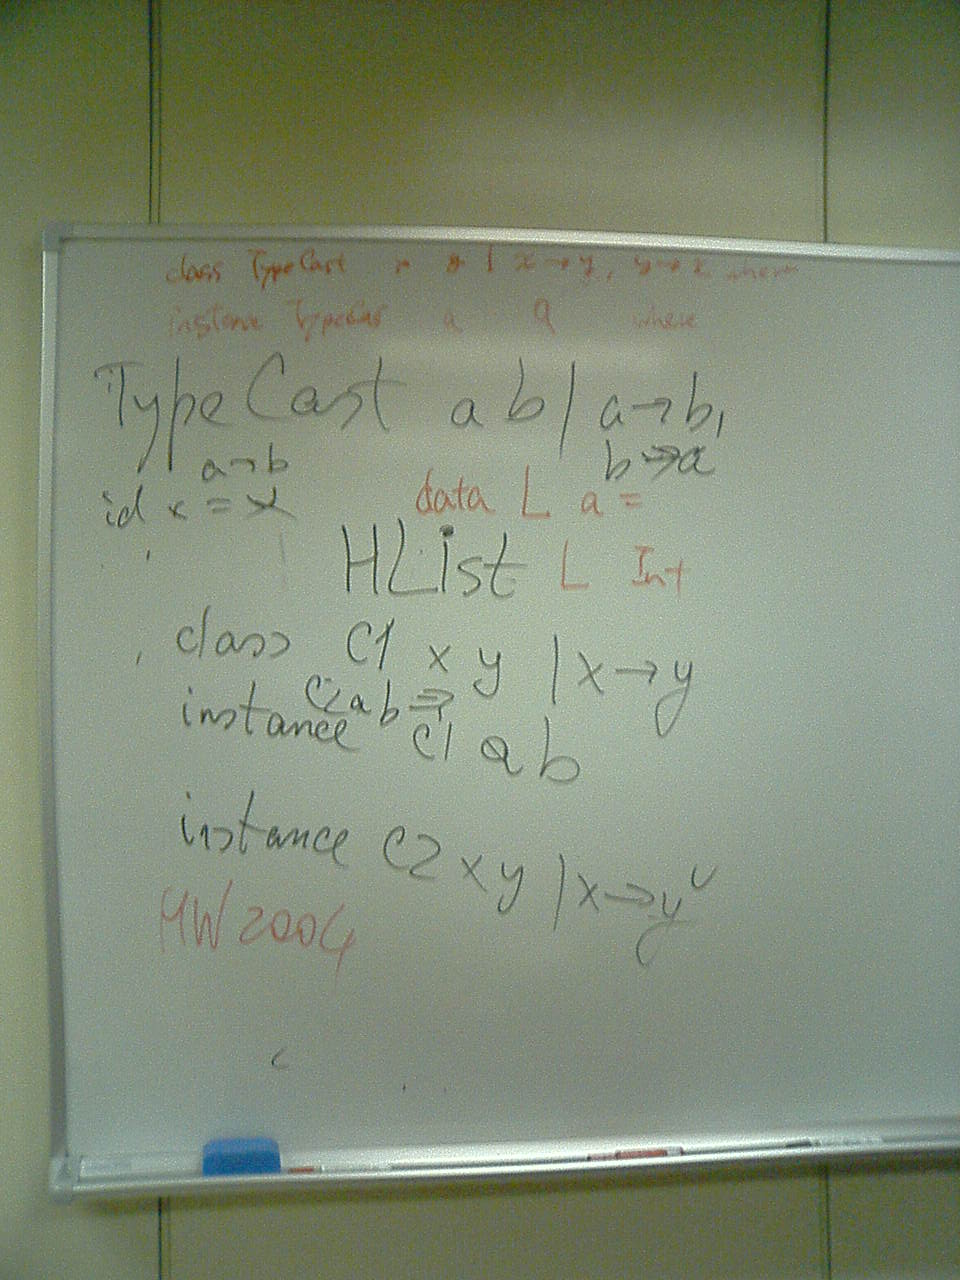 class TypeCast x y | x → y, y → x where
instance TypeCast a a where
TypeCast a b | a → b,
a → b b → a
id x = x data L a =
HList L Int
class C1 x y | x → y
instance C2 a b ⇒ C1 a b
instance C2 x y | x → y
HW 2004